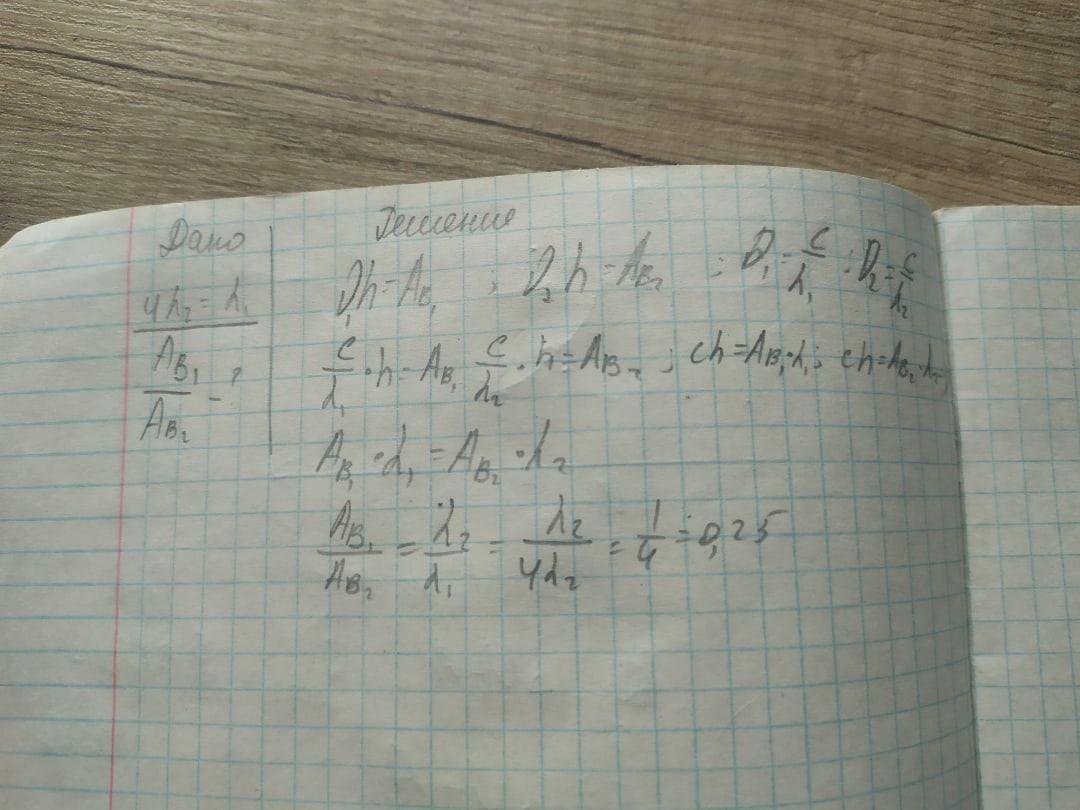 Дано
4λ₂ = λ₁
A_B₁ / A_B₂ - ?
Решение
ν₁h = A_B₁ ; ν₂h = A_B₂ ; ν₁ = c/λ₁ ; ν₂ = c/λ₂
c/λ₁ · h = A_B₁ c/λ₂ · h = A_B₂ ; ch = A_B₁ · λ₁ ; ch = A_B₂ · λ₂ ;
A_B₁ · λ₁ = A_B₂ · λ₂
A_B₁ / A_B₂ = λ₂/λ₁ = λ₂/4λ₂ = 1/4 = 0,25